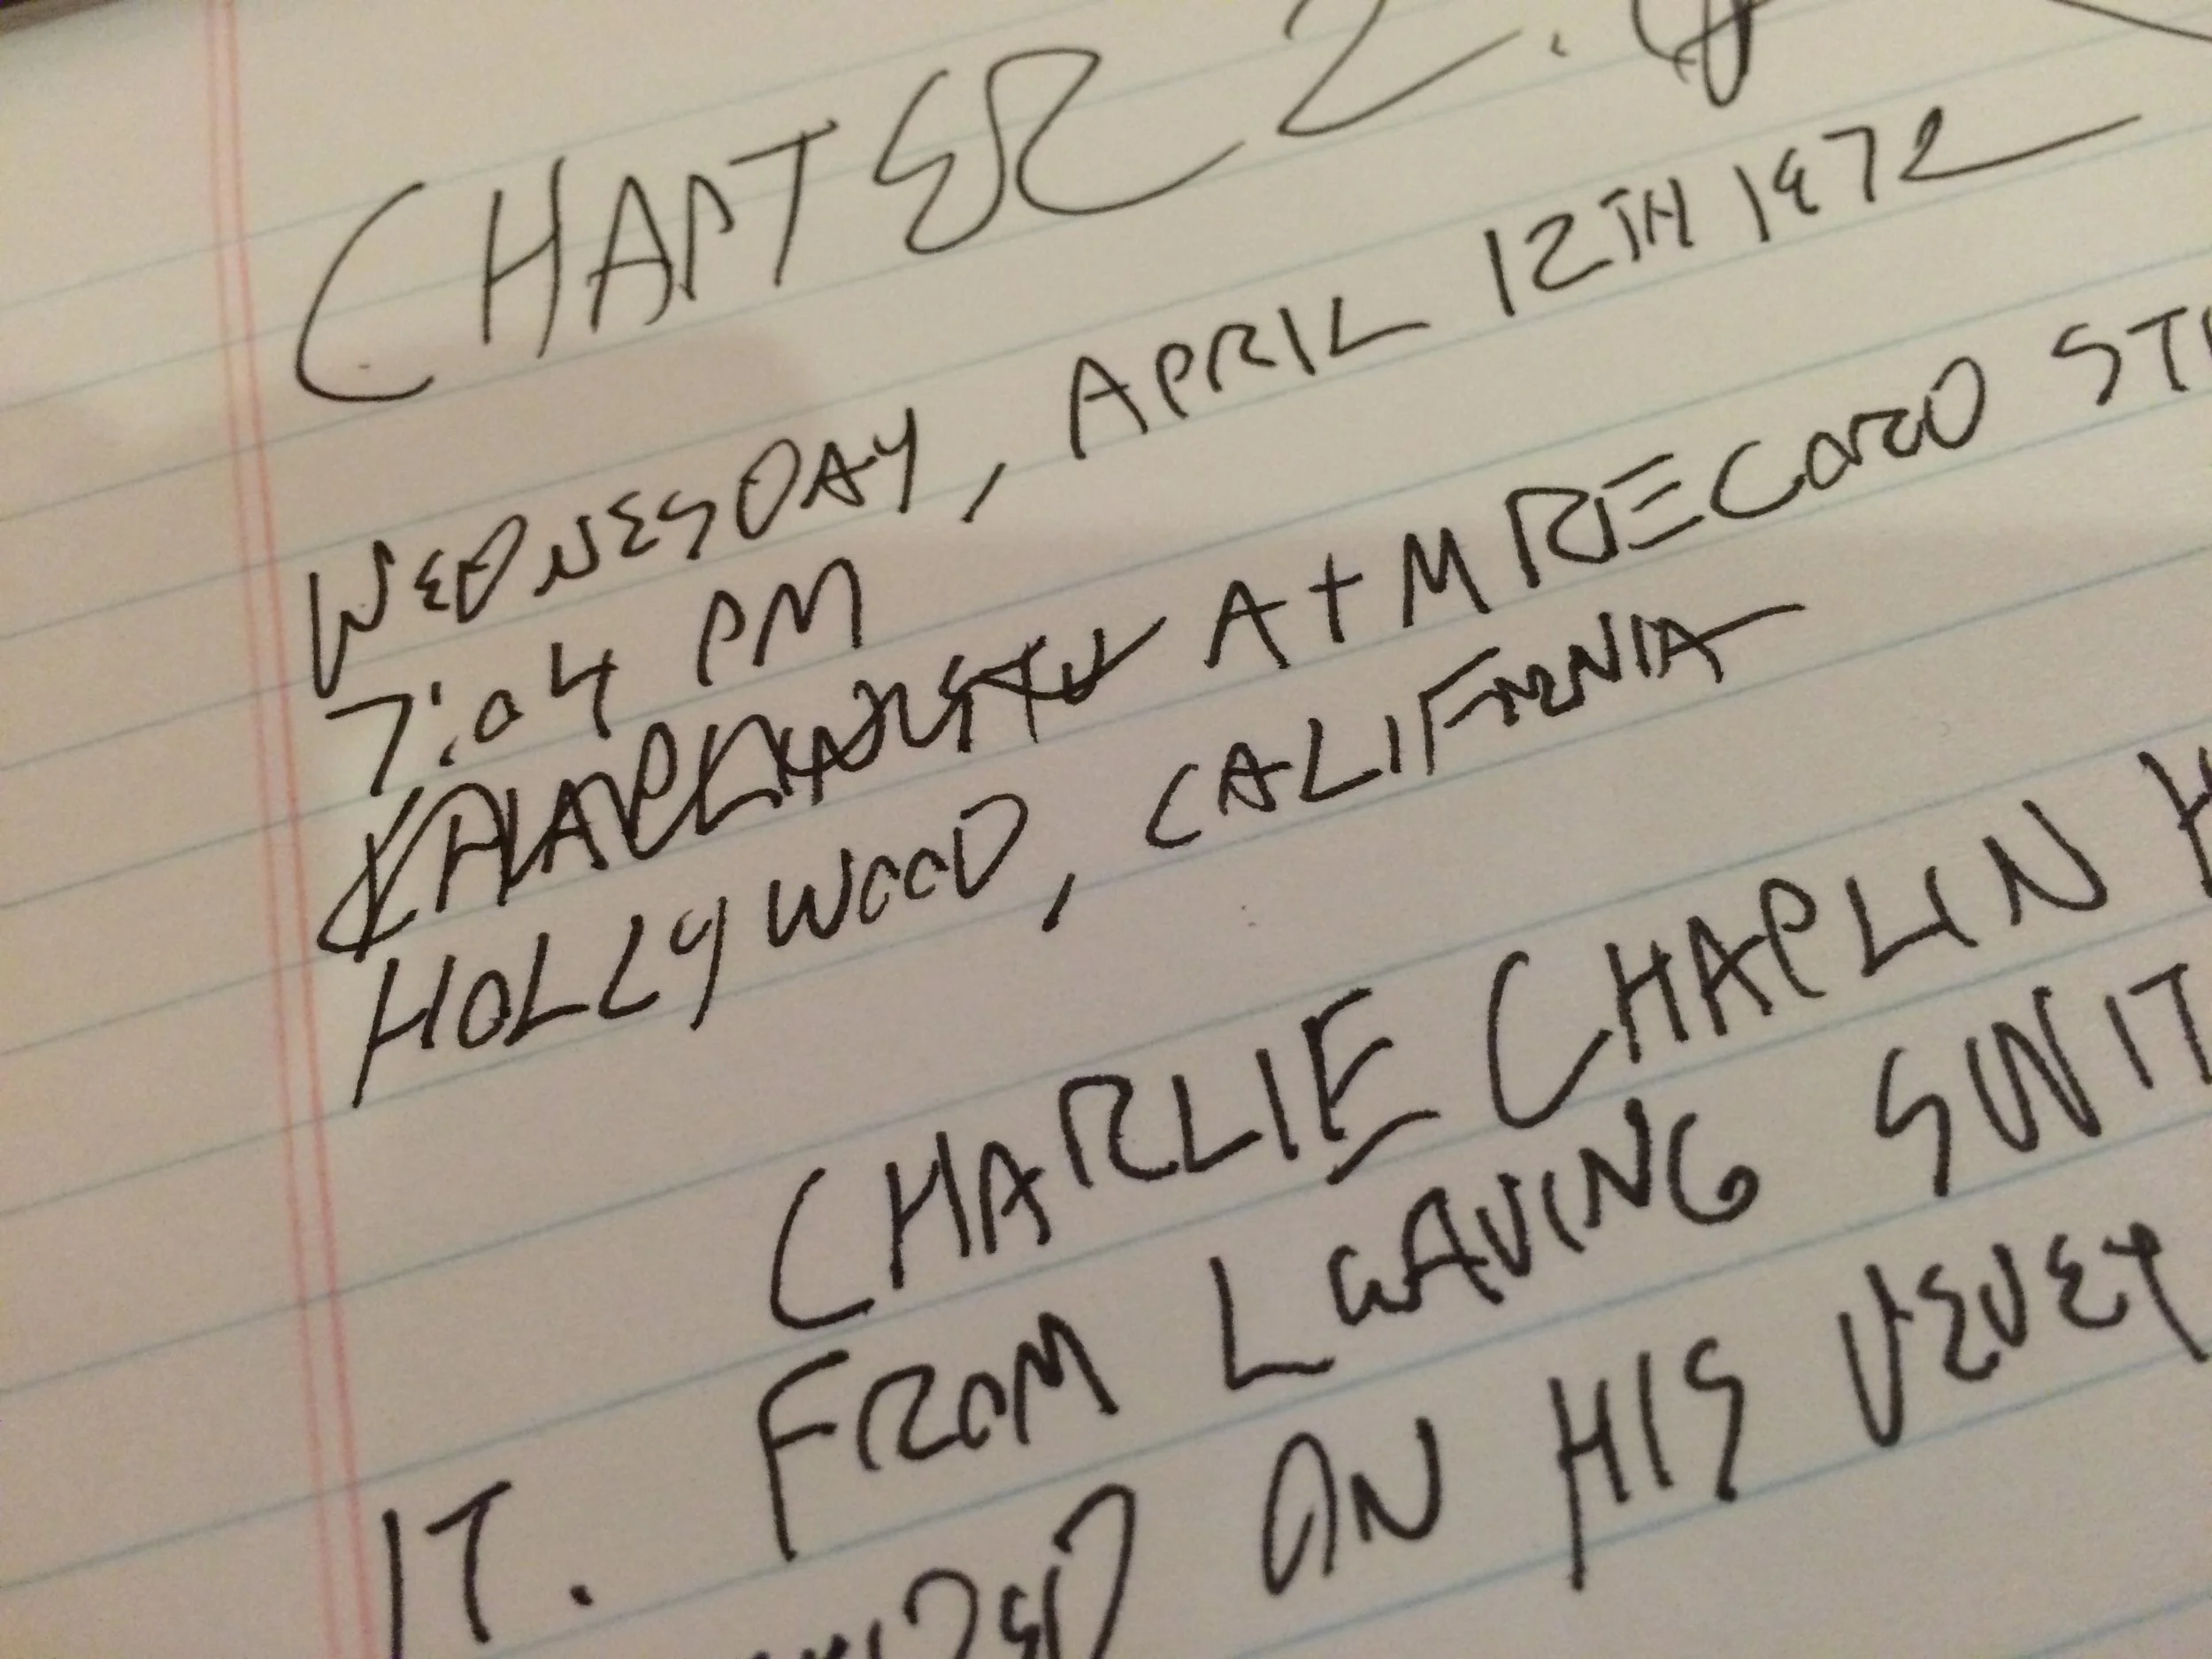 CHAPTER 2.
WEDNESDAY, APRIL 12TH 1972
7:04 PM
A+M RECORD
HOLLYWOOD, CALIFORNIA
CHARLIE CHAPLIN
FROM LEAVING
IT. ON HIS VEVEY